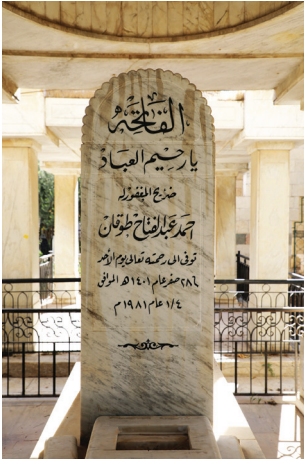 الفاتحة
يا رحيم العباد
ضريح المغفور له
احمد عبدالفتاح طوقان
توفى الى رحمته تعالى يوم الأحد
٢٨ صفر عام ١٤٠١ هـ الموافق
١/٤ عام ١٩٨١ م